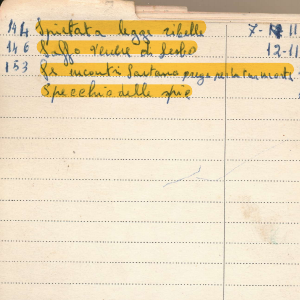 144 Spiritata legge ribelle 7-1 11
146 Saffo venere di Lesbo 12-11
153 Se incontri Sartana prega per la tua morte
Specchio delle spie